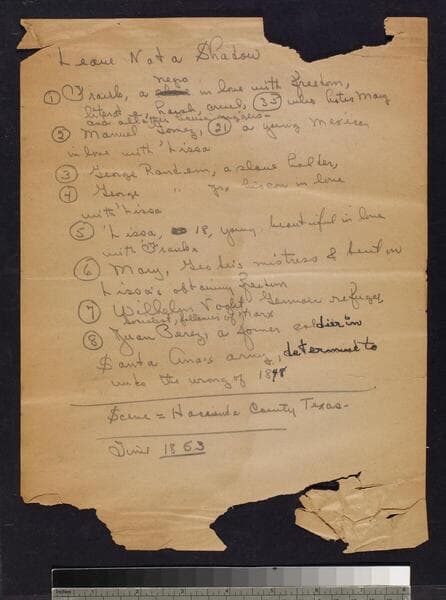 Leave Not a Shadow
negro
① Frank, a in love with freedom,
literate, harsh, cruel, (35) who hates Mary
and all other
② Manuel Gomez, (21) a young Mexican
in love with 'Lissa
③ George Random, a slave holder,
④ George " Jr, his son in love
with 'Lissa
⑤ 'Lissa, 18, young, beautiful in love
with Frank
⑥ Mary, George's mistress & bent on
Lissa's obtaining freedom
⑦ Wilhelm Voght, German refugee,
Socialist, follower of Marx
⑧ Juan Perez, a former soldier in
Santa Ana's army, determined to
undo the wrong of 1848
Scene = County Texas-
Time 1853